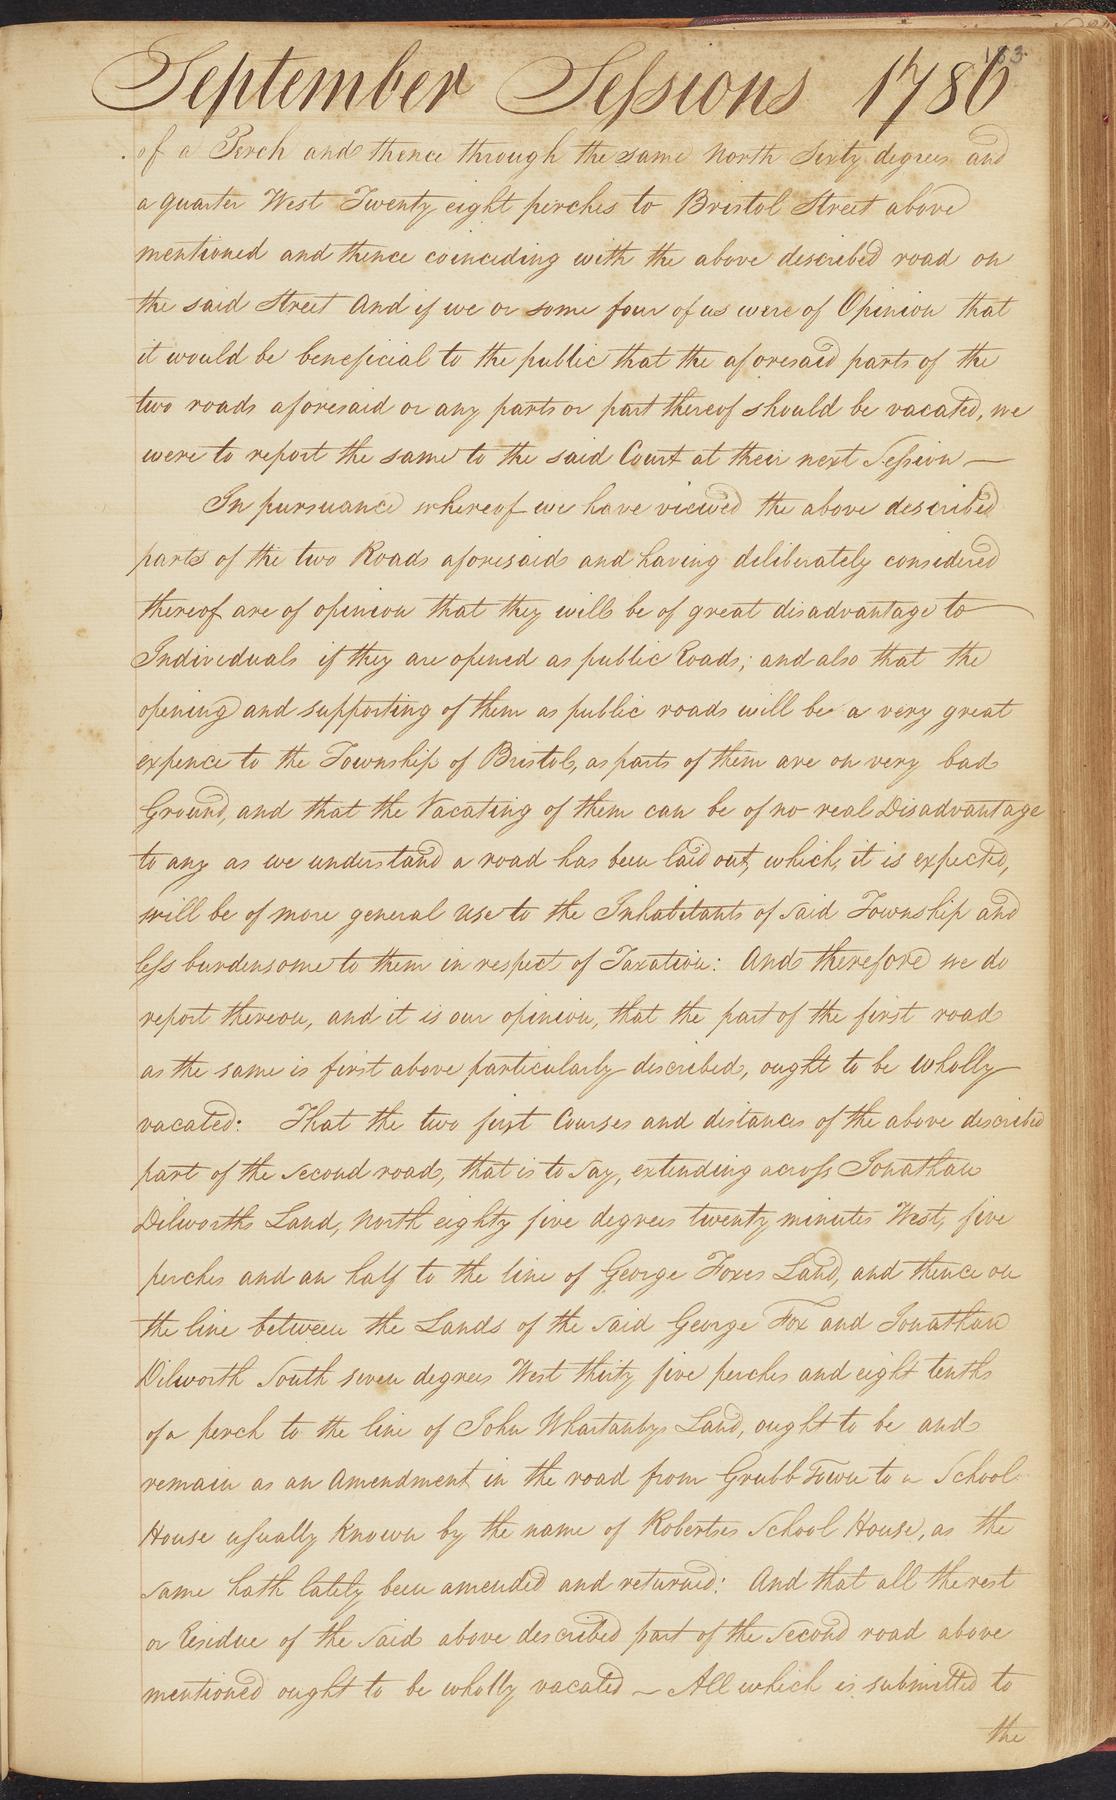 183
September Sessions 1786
of a Perch and thence through the same North Sixty degrees and
a quarter West Twenty eight perches to Bristol Street above
mentioned and thence coinciding with the above described road on
the said Street And if we or some four of us were of Opinion that
it would be beneficial to the public that the aforesaid parts of the
two roads aforesaid or any parts or part thereof should be vacated, we
were to report the same to the said Court at their next Session —
In pursuance whereof we have viewed the above described
parts of the two Roads aforesaid and having deliberately considered
thereof are of opinion that they will be of great disadvantage to
Individuals if they are opened as public Roads; and also that the
opening and supporting of them as public roads will be a very great
expence to the Township of Bristol, as parts of them are on very bad
Ground, and that the Vacating of them can be of no real Disadvantage
to any as we understand a road has been laid out, which, it is expected,
will be of more general use to the Inhabitants of said Township and
less burdensome to them in respect of Taxation: And therefore we do
report thereon, and it is our opinion, that the part of the first road
as the same is first above particularly described, ought to be wholly
vacated: That the two first Courses and distances of the above described
part of the second road, that is to say, extending across Jonathan
Dilworths Land, North eighty five degrees twenty minutes West, five
perches and an half to the line of George Foxes Land, and thence on
the line between the Lands of the said George Fox and Jonathan
Dilworth South seven degrees West thirty five perches and eight tenths
of a perch to the line of John Whartanbys Land, ought to be and
remain as an Amendment in the road from Grubb Town to a School
House usually known by the name of Robertses School House, as the
same hath lately been amended and returned: And that all the rest
or Residue of the said above described part of the Second road above
mentioned ought to be wholly vacated — All which is submitted to
the